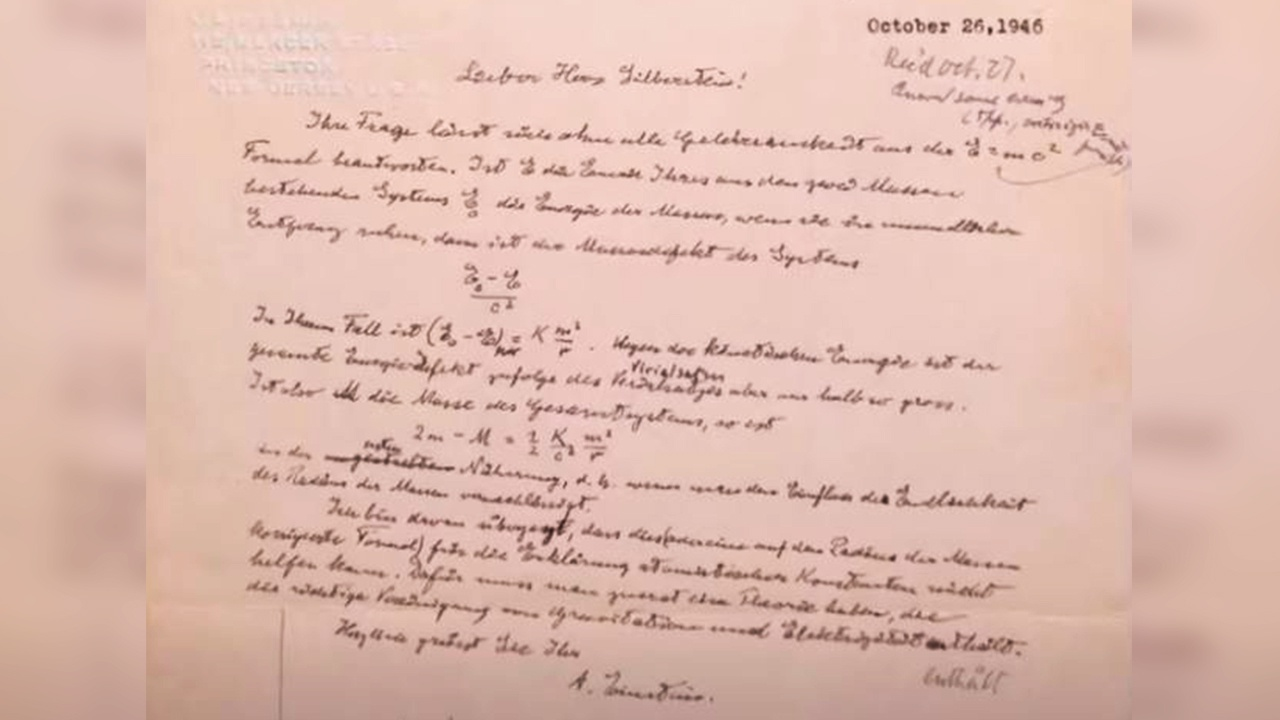 MERCER
PRINCETON
NEW JERSEY U.S.A.
October 26,1946
Rec'd oct. 27.
Answ'd same
Lieber Herr Silberstein!
Ihre Frage lässt sich ohne alle Gelehrsamkeit aus der E = mc²
Formel beantworten. Ist E die Energie Ihres aus den zwei Massen
bestehenden Systems E₀ die Energie der Massen, wenn sie in unendlicher
Entfernung ruhen, dann ist der Massendefekt des Systems
E₀ - E
c²
In Ihrem Fall ist (E₀ - E)pot = K m²/r . Wegen der kinetischen Energie ist der
Virialsatzes
gesamte Energiedefekt zufolge des aber nur halb so gross.
Ist also M die Masse des Gesamtsystems, so ist
2m - M = 1/2 K/c² m²/r
ersten
in der Näherung, d. h. wenn man den Einfluss der Endlichkeit
des Radius der Massen vernachlässigt.
Ich bin davon überzeugt, dass dies (oder eine auf den Radius der Massen
korrigierte Formel) für die Erklärung atomistischer Konstanten nicht
helfen kann. Dafür muss man zuerst eine Theorie haben, die
die richtige Vereinigung von Gravitation und Elektrizität enthält.
enthält
Herzlich grüsst Sie Ihr
A. Einstein.